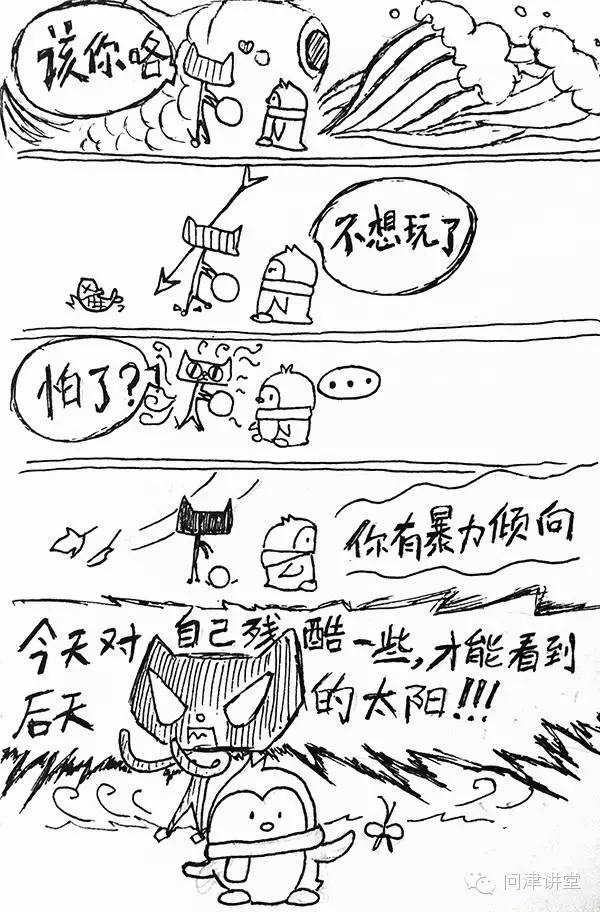 该你咯
不想玩了
怕了？
...
你有暴力倾向
今天对自己残酷一些，才能看到
后天的太阳!!!
问津讲堂